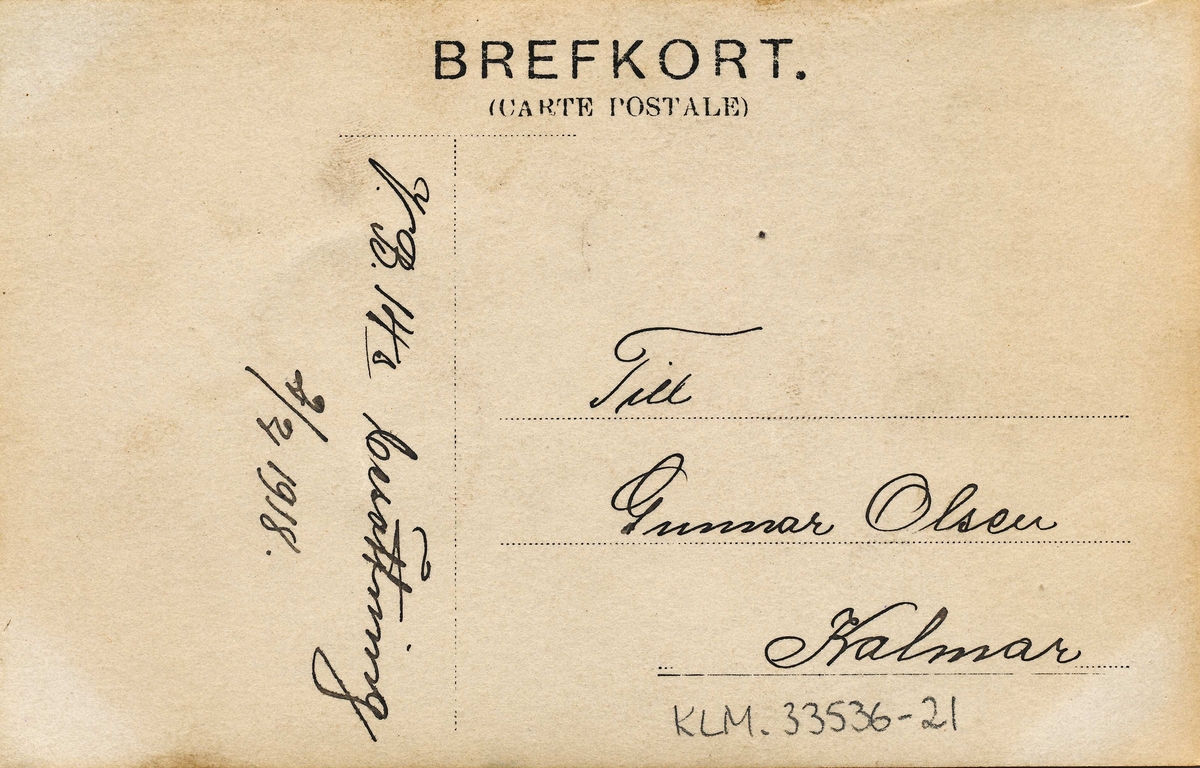 BREFKORT.
(CARTE POSTALE)
besättning
2/2 1918.
Till
Gunnar Olsen
Kalmar
KLM. 33536-21